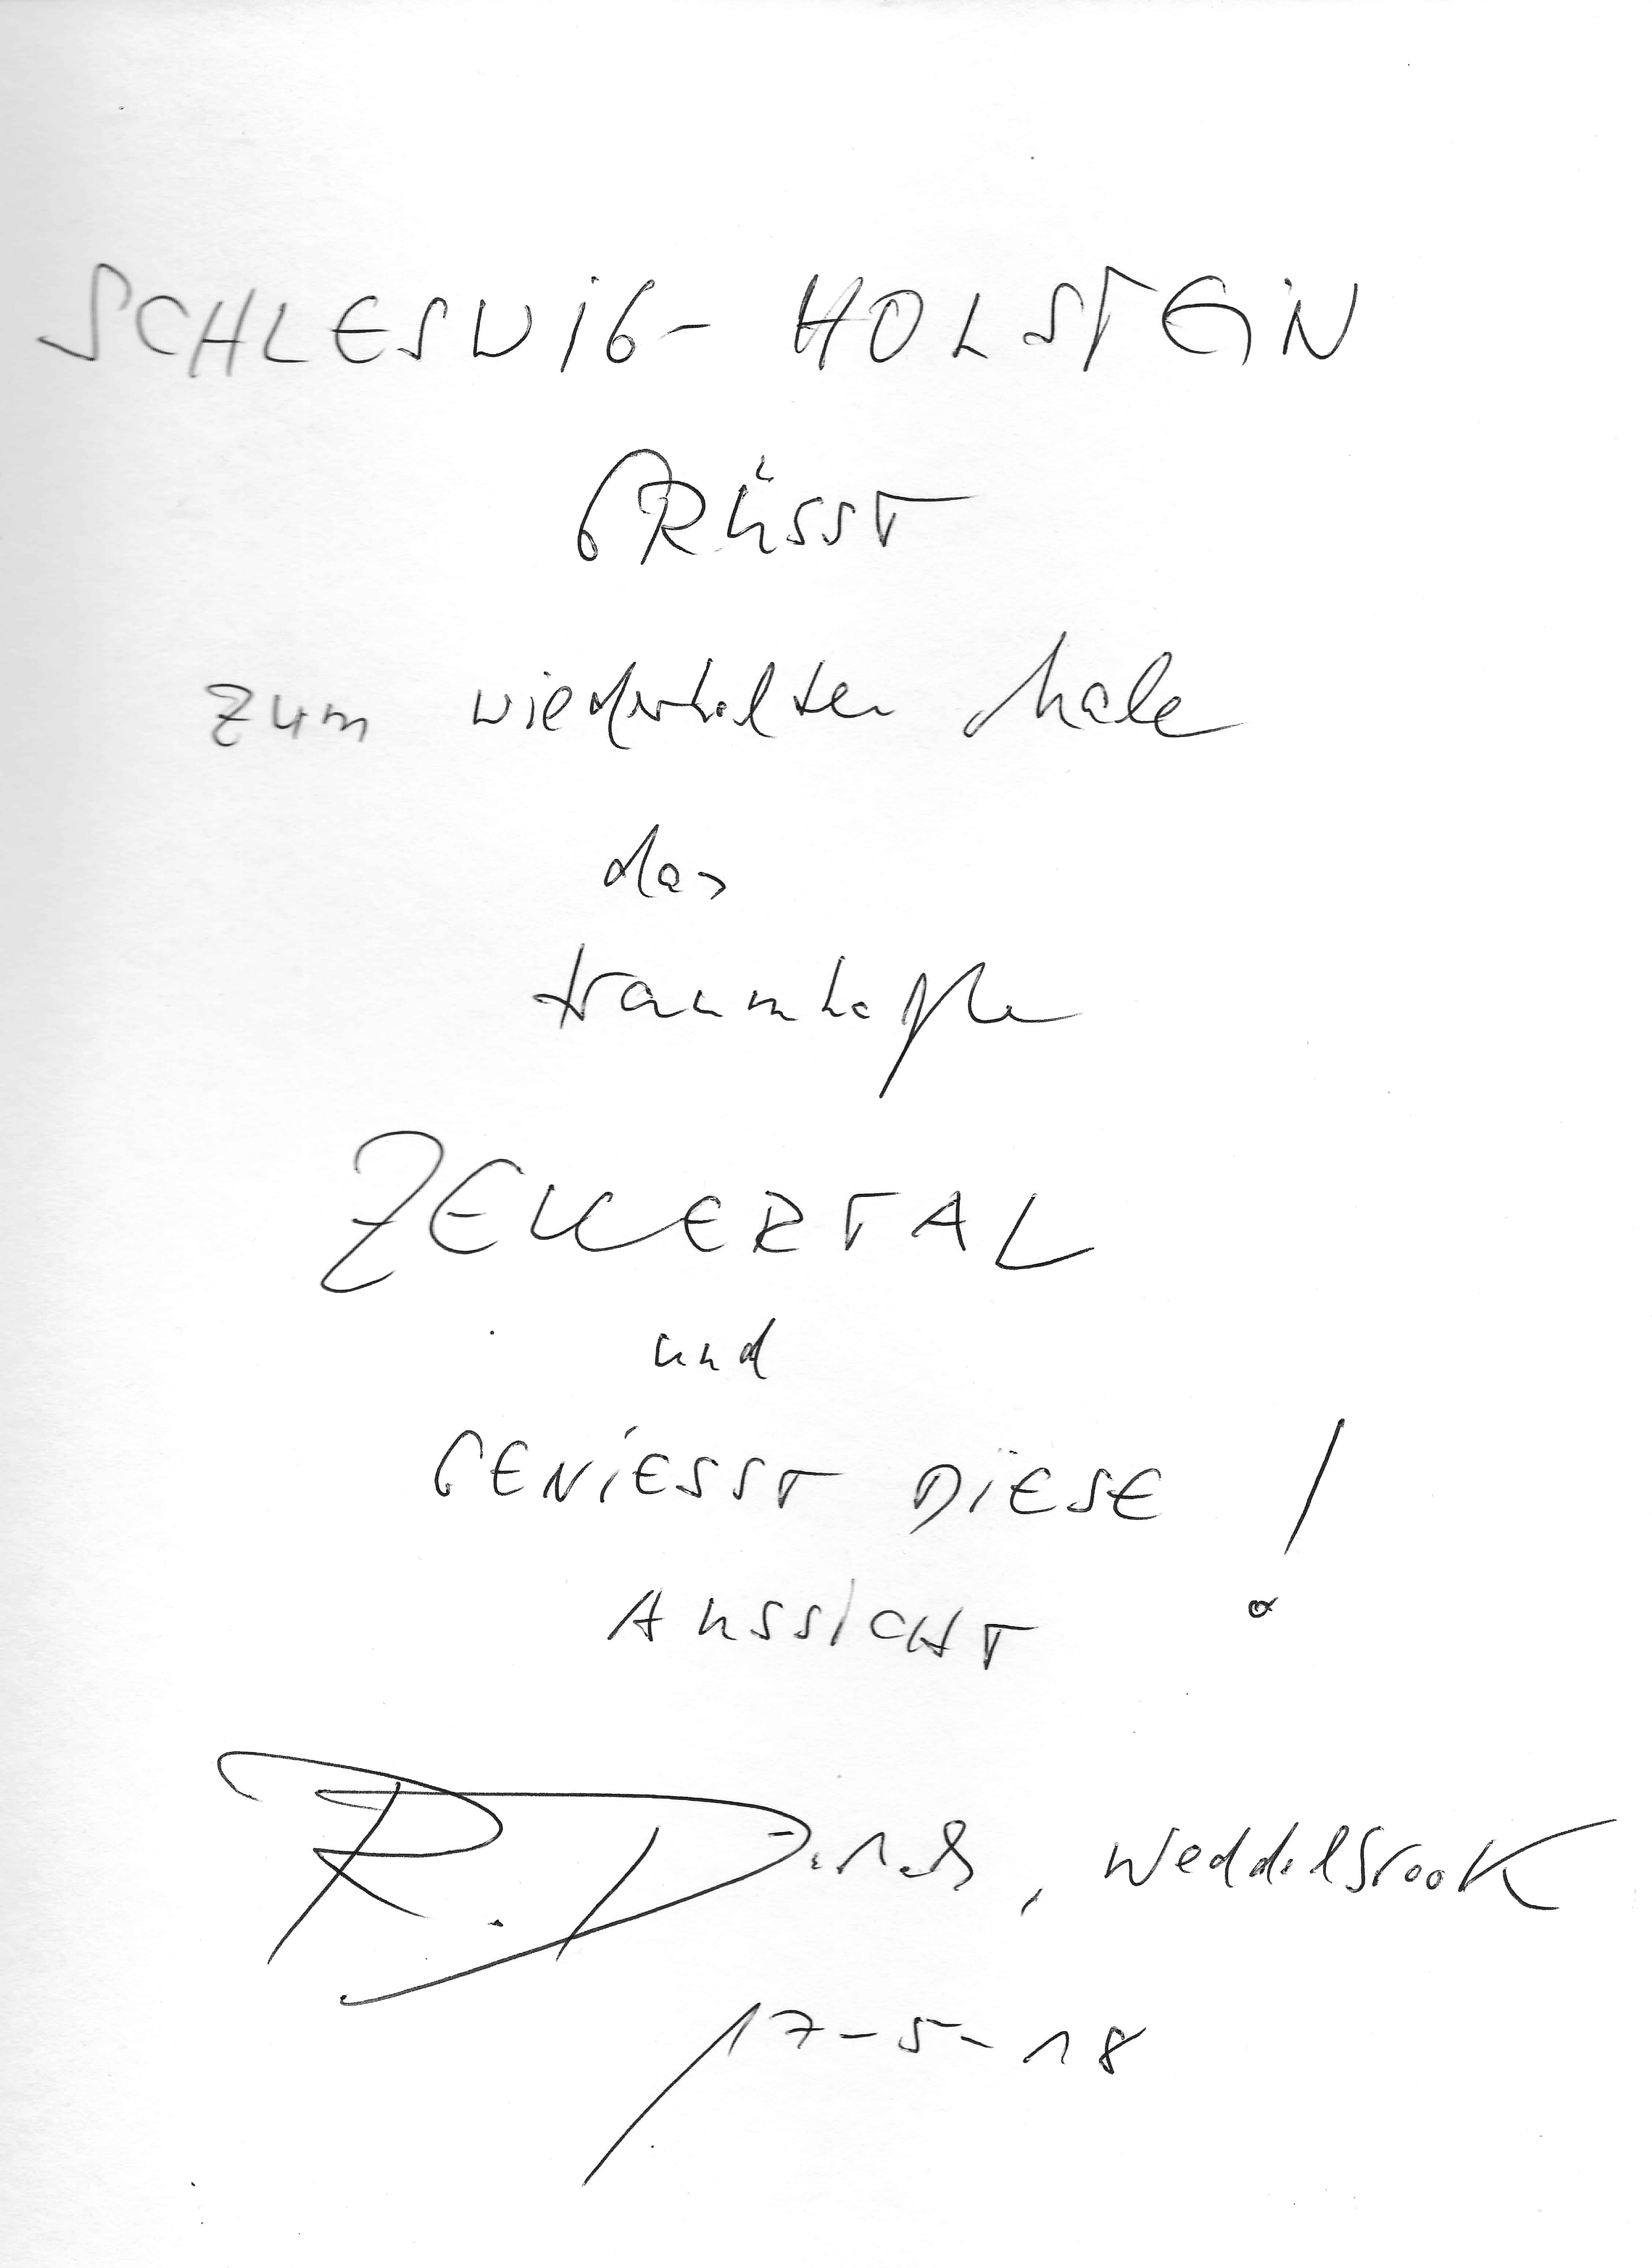 SCHLESWIG- HOLSTEIN
GRÜSST
zum wiederholten Male
das
traumhafte
ZELLERTAL
und
GENIESST DIESE !
AUSSICHT
R. , Weddelbrook
17-5-18